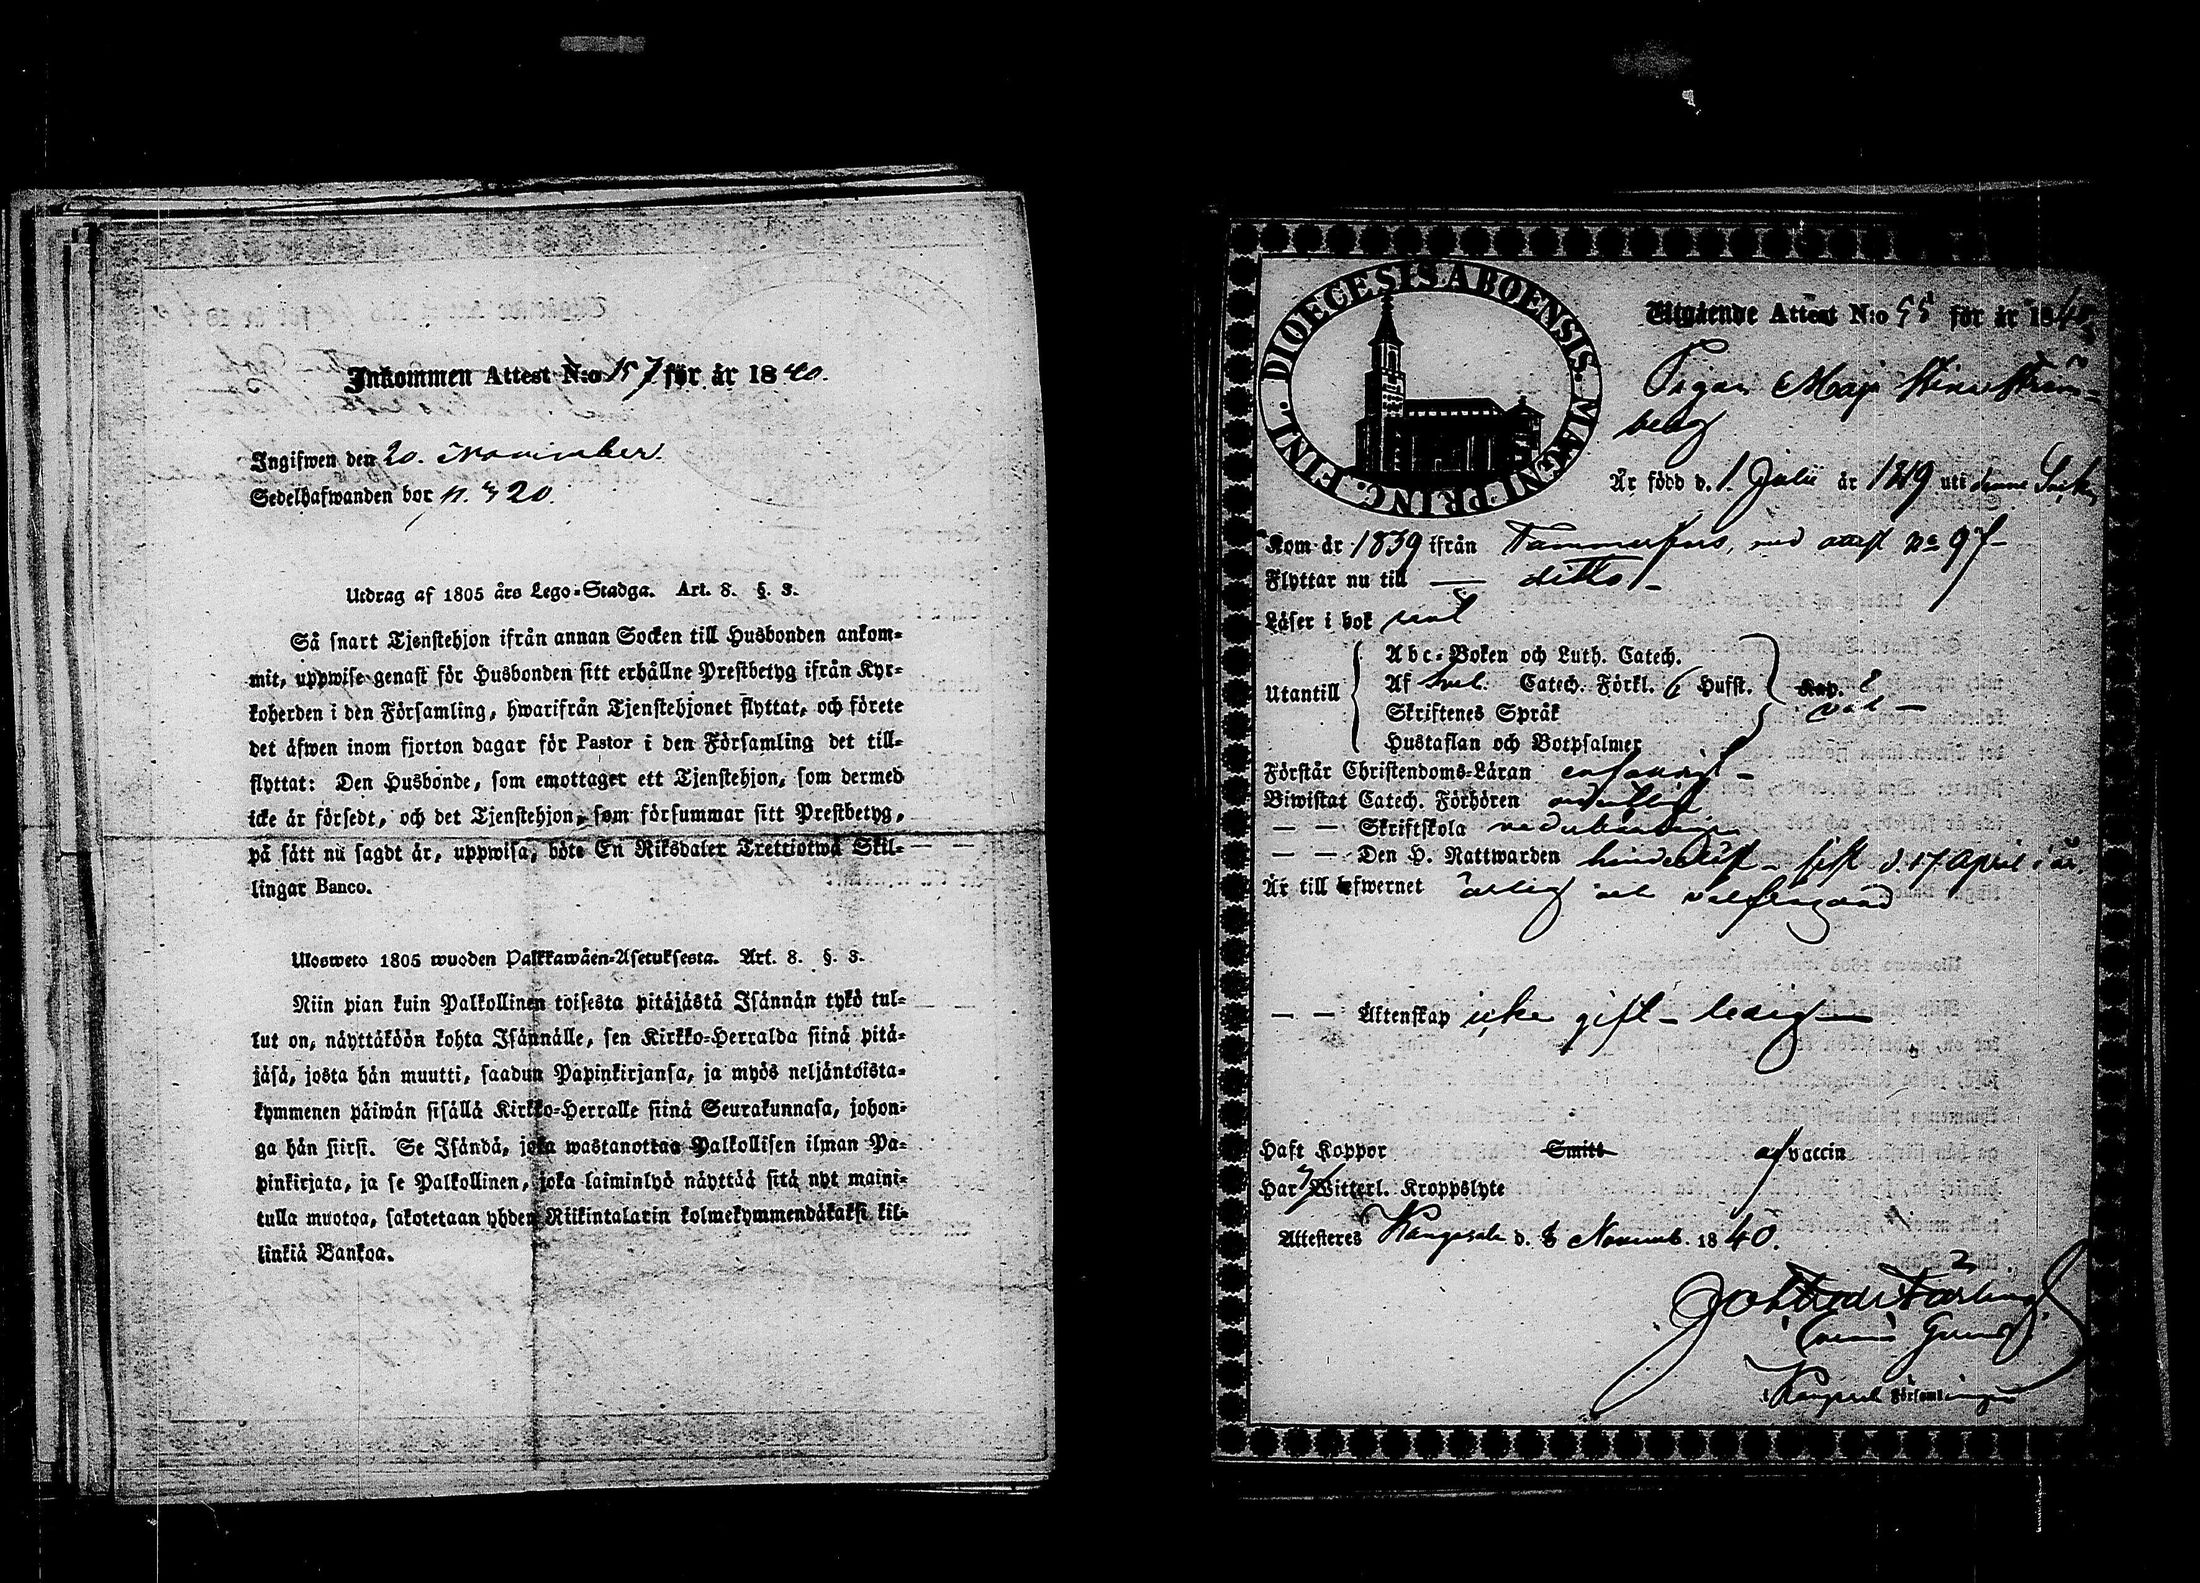 Inkommen Attest N:o 157 för år 1840.
Ingifwen den 20. November.
Sedelhafwanden bor p. 320.
Utdrag af 1805 års Lego-Stadga. Art. 8. §. 3.
Så snart Tjenstehjon ifrån annan Socken till Husbonden ankom-
mit, uppwise genast för Husbonden sitt erhållne Prestbetyg ifrån Kyr-
koherden i den Församling, hwarifrån Tjenstehjonet flyttat, och förete
det äfwen inom fjorton dagar för Pastor i den Församling det till-
flyttat: Den Husbonde, som emottager ett Tjenstehjon, som dermed
icke är försedt, och det Tjenstehjon, som försummar sitt Prestbetyg,
på sätt nu sagdt är, uppwisa, böte En Riksdaler Trettiotwå Skil-
lingar Banco.
Ulosweto 1805 wuoden Palkkawäen-Asetuksesta. Art. 8. §. 3.
Niin pian kuin Palkollinen toisesta pitäjästä Isännän tykö tul-
lut on, näyttäköön kohta Isännälle, sen Kirkko-Herralda siinä pitä-
jäsä, josta hän muutti, saadun Papinkirjansa, ja myös neljäntoista-
kymmenen päiwän sisällä Kirkko-Herralle siinä Seurakunnasa, johon-
ga hän siirsi. Se Isändä, joka wastanottaa Palkollisen ilman Pa-
pinkirjata, ja se Palkollinen, joka laiminlyö näyttää sitä nyt maini-
tulla muotoa, sakotetaan yhden Riikintalarin kolmekymmendäkaksi kil-
linkiä Bankoa.
DIOECESIS ABOENSIS. MAGNI PRINC. FINL.
Utgående Attest N:o 55 för år 1840
Pigan Maja Stina Ström-
berg
Är född d. 1. Julii år 1819 uti denne Sock.
Kom år 1839 ifrån Tammerfors, med attest No 97
Flyttar nu till — ditto —
Läser i bok
Abc-Boken och Luth. Catech.
Utantill Af Catech. Förkl. 6 Hufst. Kap. 8
Skriftenes Språk
Hustaflan och Botpsalmer
Förstår Christendoms-Läran enfaldigt —
Biwistat Catech. Förhören ordentligt
— — Skriftskola
— — Den H. Nattwarden sist d. 17 April i år.
Är till lefwernet ärlig och välfrägdad
— — Äktenskap icke gift — ledig —
Haft Koppor Smitt af vaccin
Har Witterl. Kroppslyte
Attesteres Kangasala d. 8 Novemb. 1840.
i Kangasala Församlingen